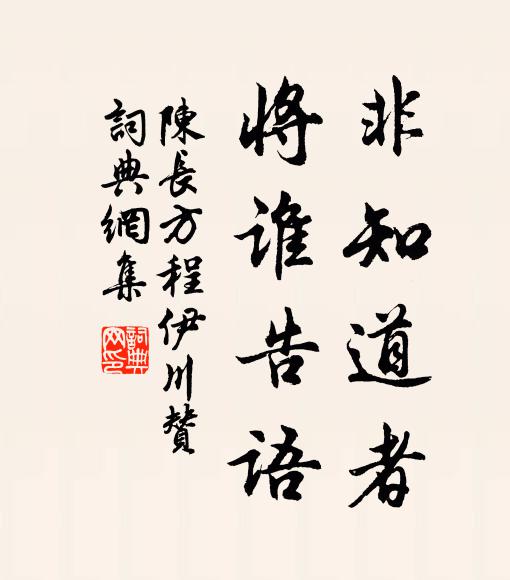 非知道者
将谁告语
陳長方程伊川贊
詞典網集
詞典网印